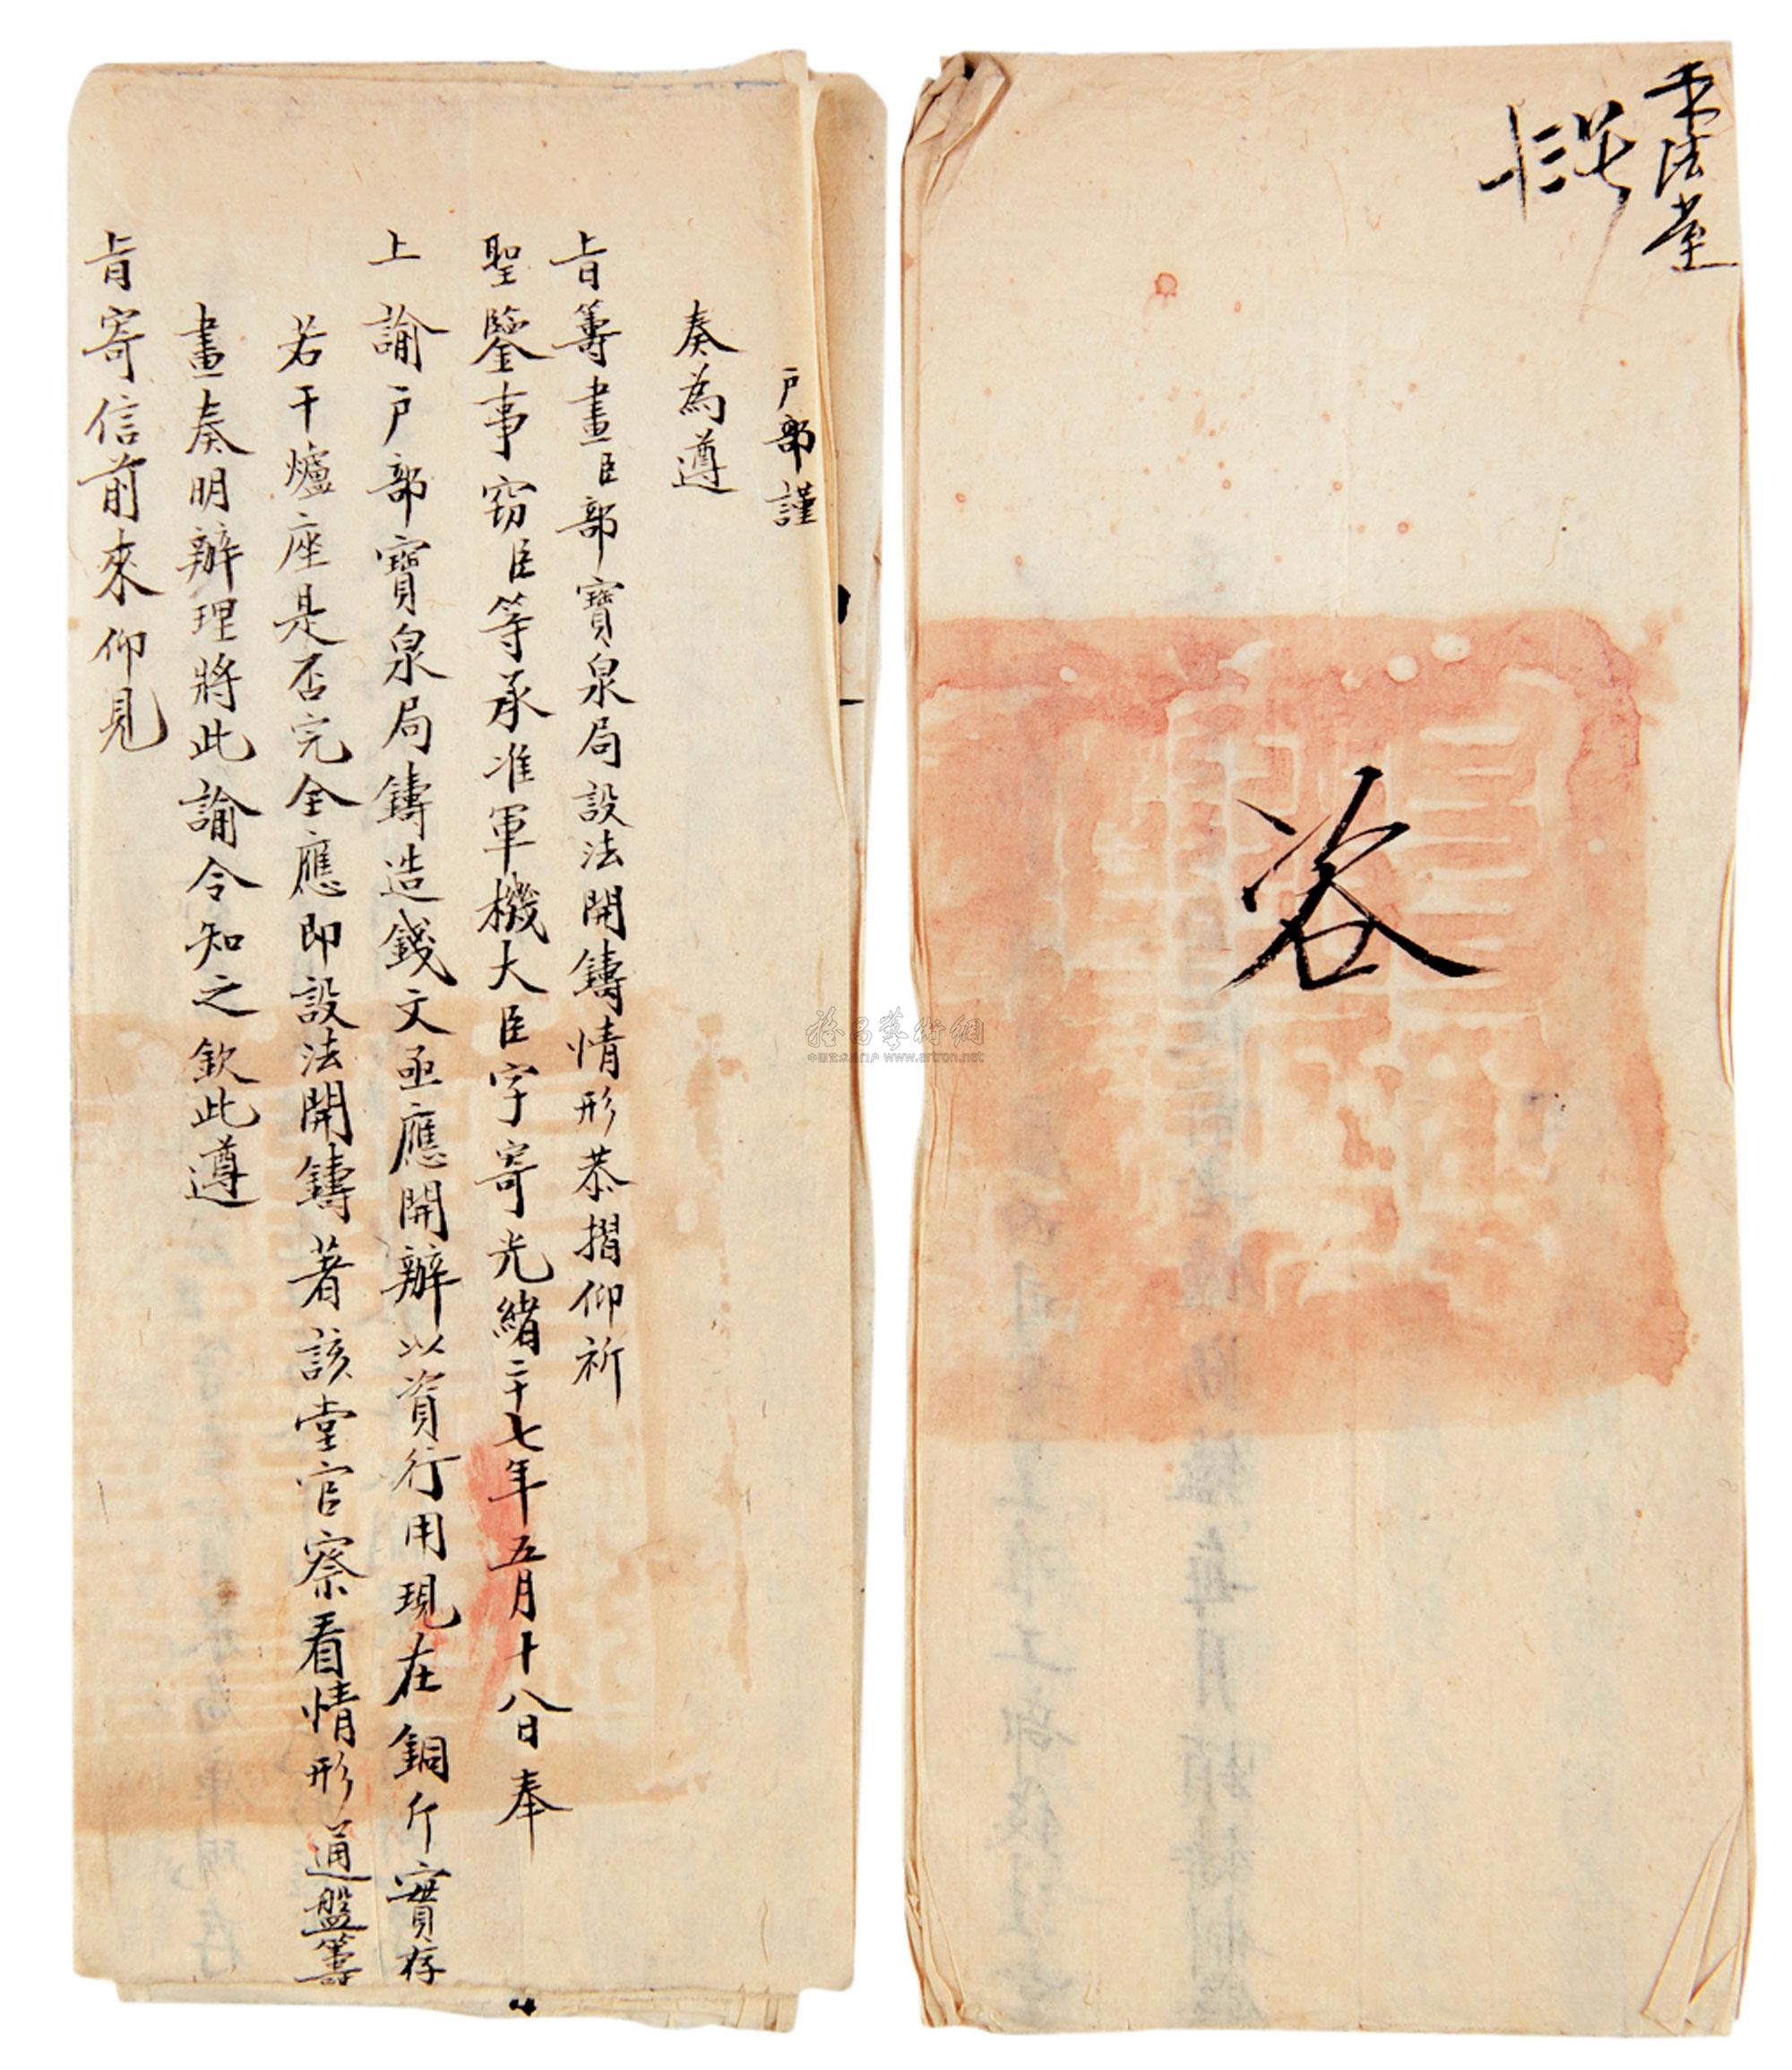 咨
戶部謹
奏為遵
旨籌畫臣部寶泉局設法開鑄情形恭摺仰祈
聖鑒事窃臣等承准軍機大臣字寄光緒二十七年五月十八日奉
上諭戶部寶泉局鑄造錢文亟應開辦以資行用現在銅斤實存
若干爐座是否完全應即設法開鑄著該堂官察看情形通盤籌
畫奏明辦理將此諭令知之欽此遵
旨寄信前來仰見
雅昌藝術網
中国艺术品门户 www.artron.net